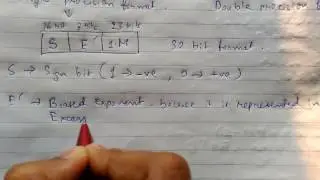 precision format
Double precision
S E' 1.M
32 bit format.
S → Sign bit (1 → -ve, 0 → +ve)
E' → Biased exponent, because it is represented in
Excess